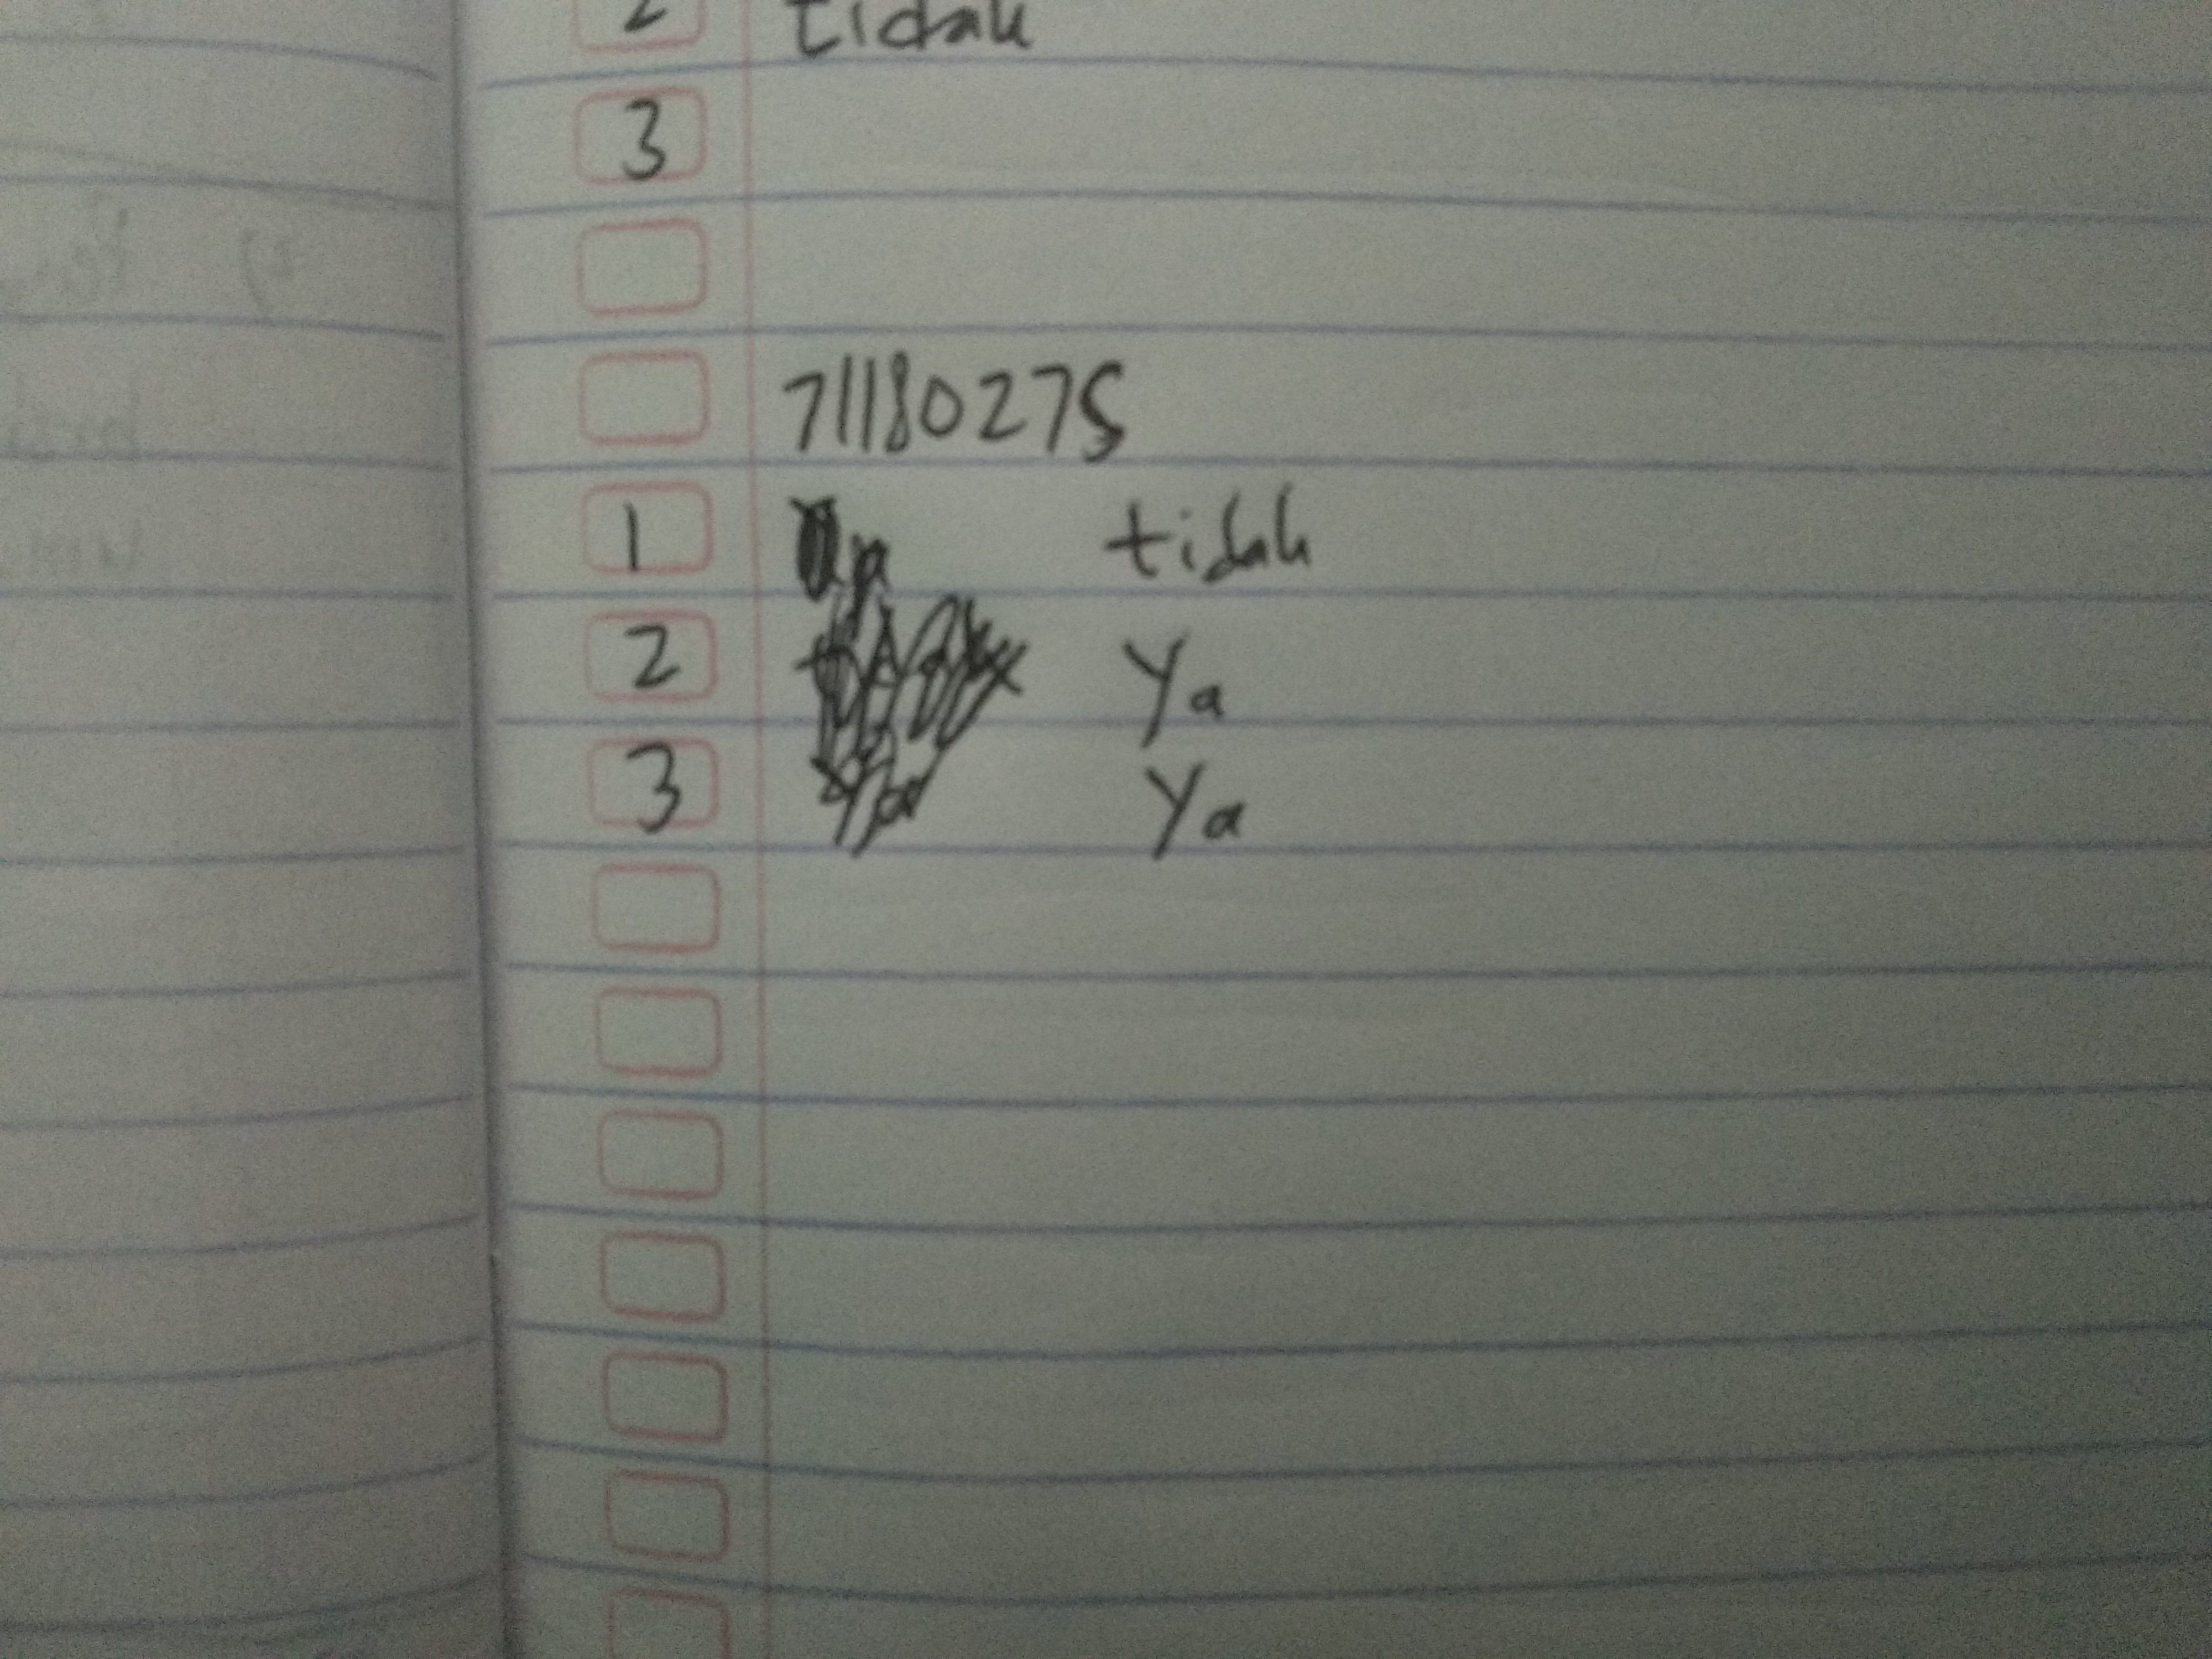 2 tidak
3
71180275
1 tidak
2 ya
3 ya